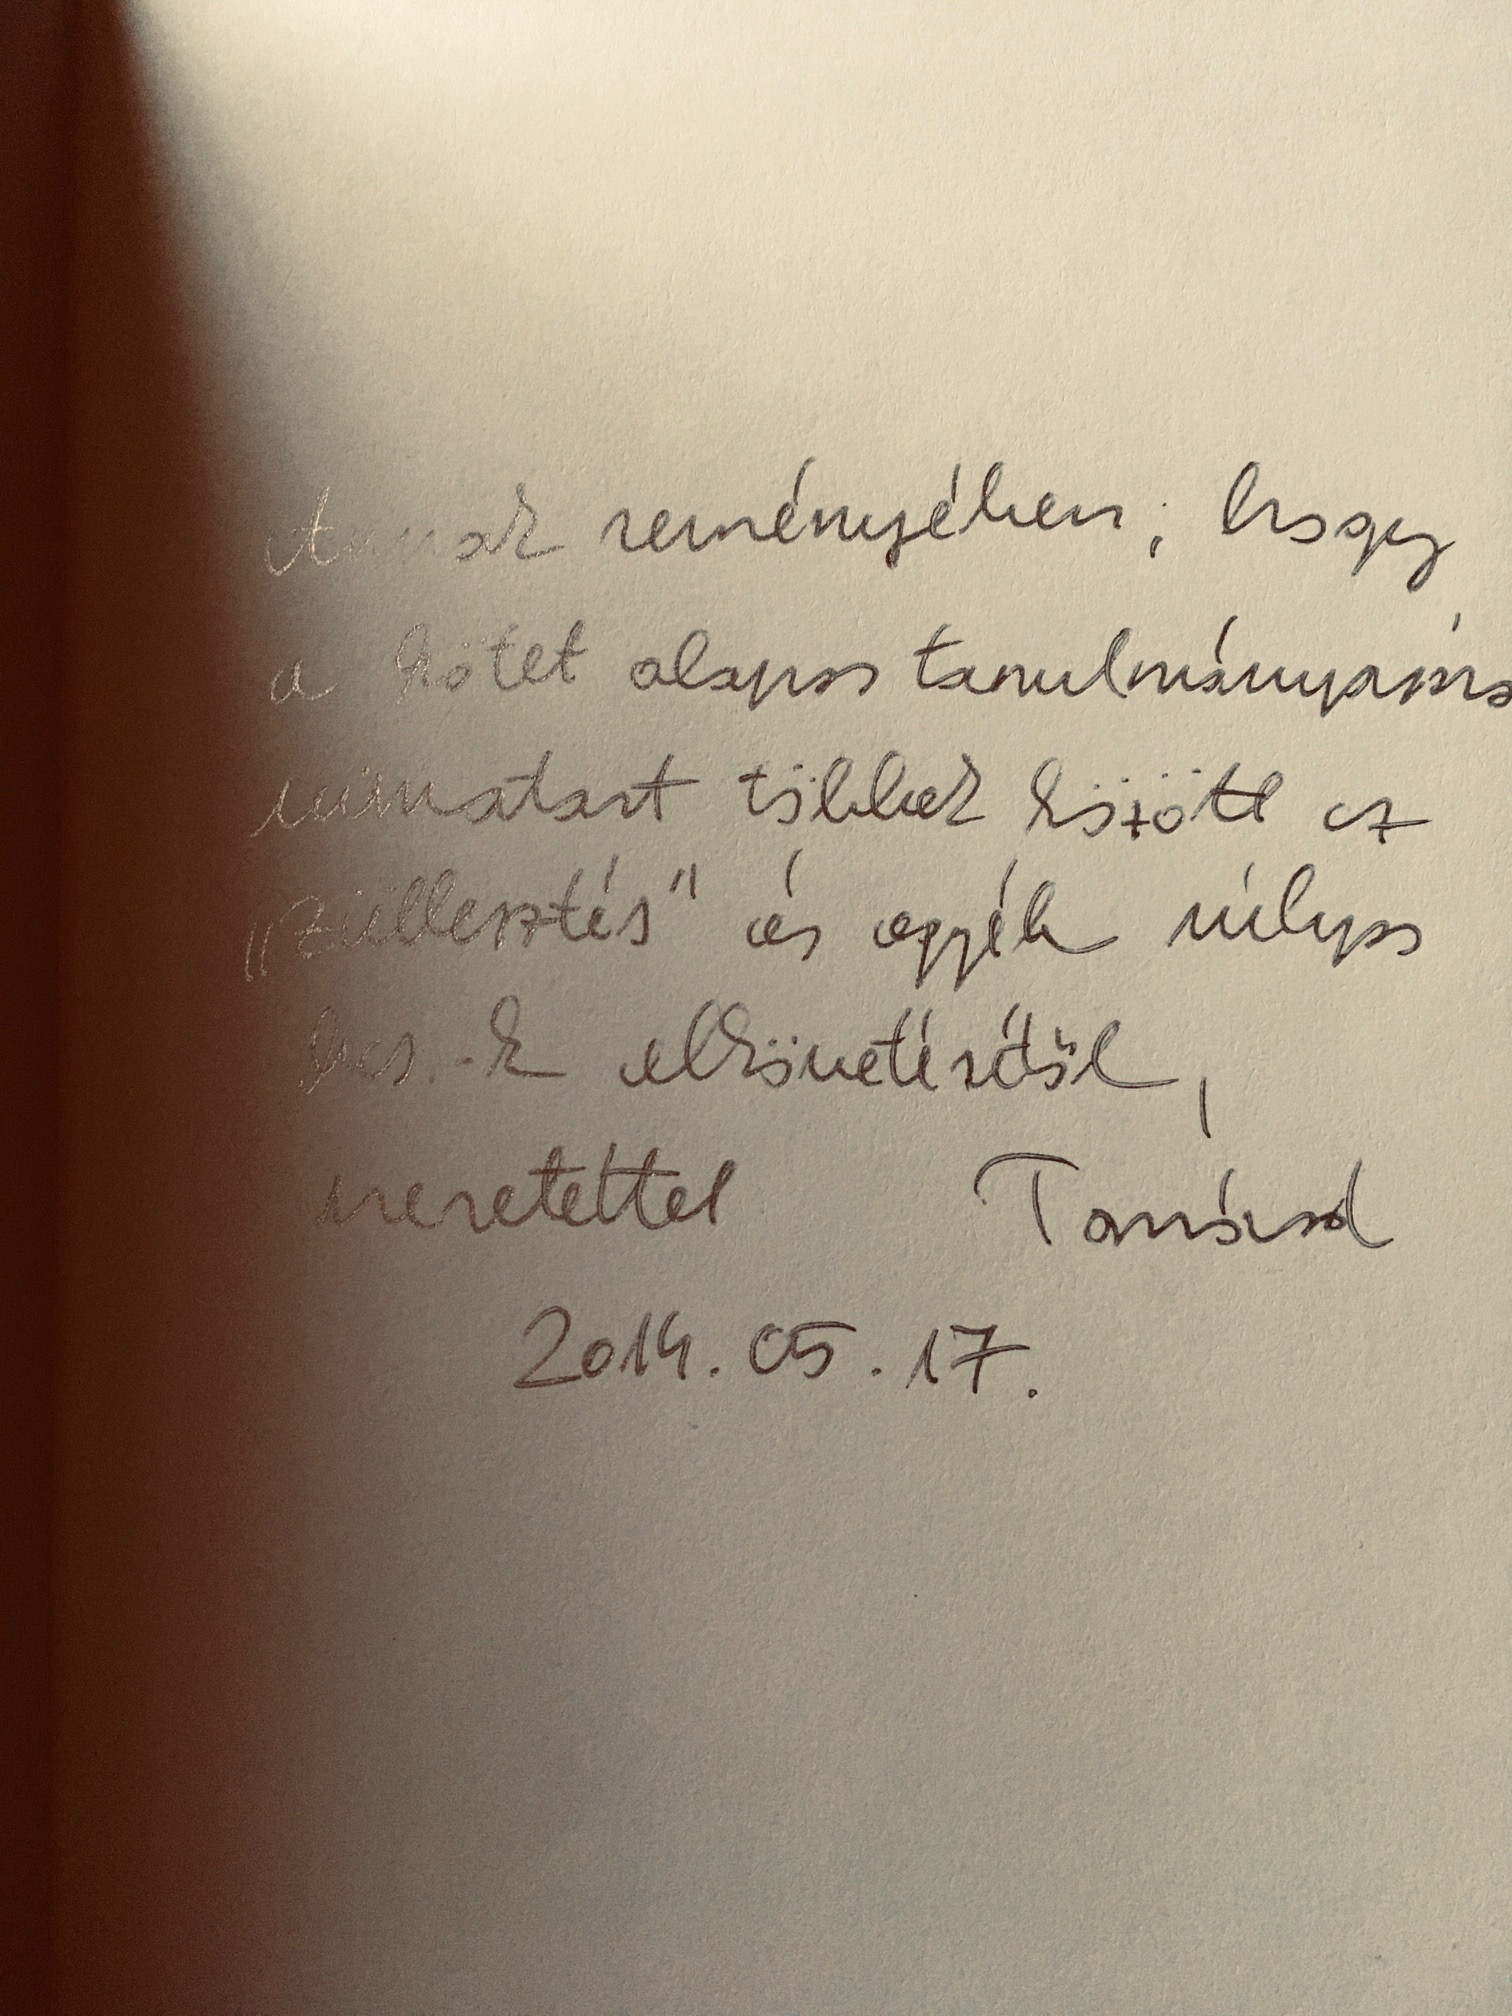 Annak reményében, hogy
a kötet alapos tanulmányozása
visszatart többek között az
„züllesztés" és egyéb súlyos
bcs.-k elkövetésétől,
szeretettel Tamásod
2014.05.17.